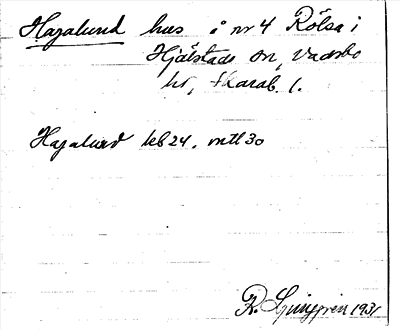 Hagalund hus å nr 4 Rölsa i
Hjälstads sn, Vadsbo
hd, Skarab. l.
Hagalund leb 24, mtl 30
R. Ljunggren 1931